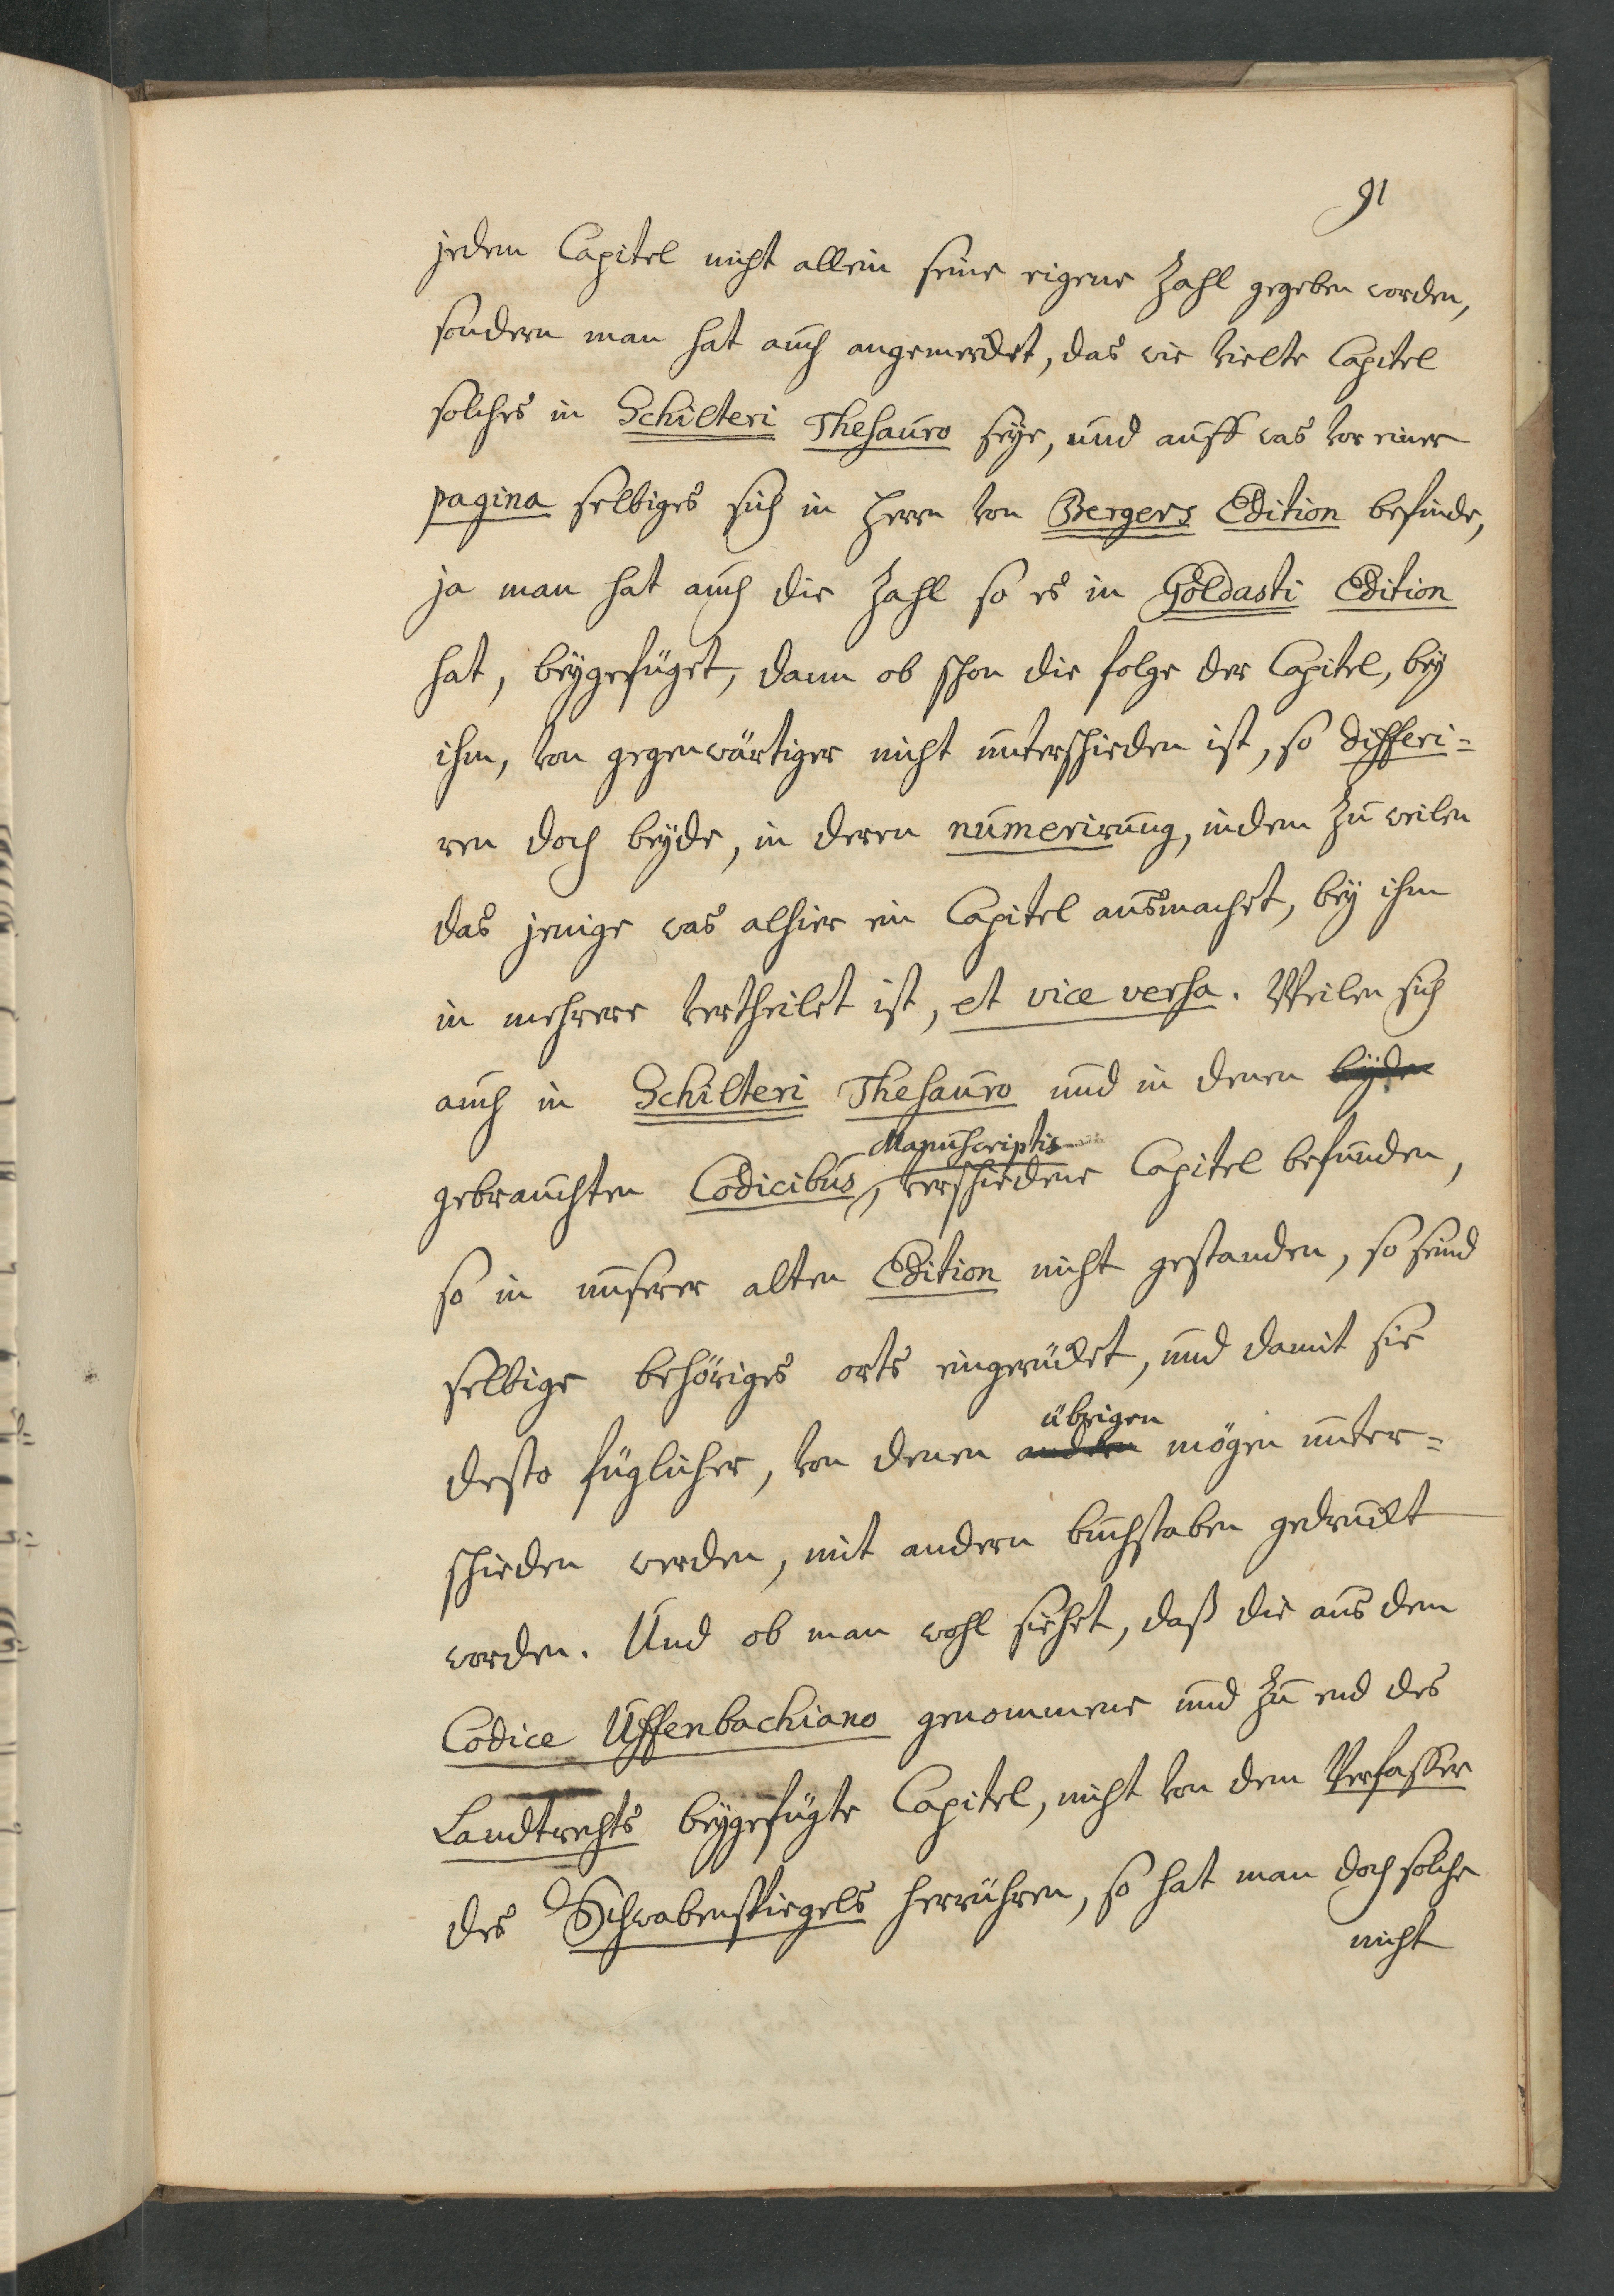 91
jedem Capitel nicht allein seine eigene Zahl gegeben worden,
sondern man hat auch angemerckt, das wie vielte Capitel
solches in Schilteri Thesauro seye, und auff was vor einer
pagina selbiges sich in Herrn von Bergers Edition befinde,
ja man hat auch die Zahl so es in Goldasti Edition
hat, beygefüget, dann ob schon die folge der Capitel, bey
ihm, von gegenwärtiger nicht unterschieden ist, so differi=
ren doch beyde, in deren numerirung, indem zu weilen
das jenige was alhier ein Capitel ausmachet, bey ihm
in mehrere vertheilet ist, et vice versa. Weilen sich
auch in Schilteri Thesauro und in denen beyden
Manuscriptis
gebrauchten Codicibus, verschiedene Capitel befunden,
so in unserer alten Edition nicht gestanden, so seind
selbige behöriges orts eingerückt, und damit sie
übrigen
desto füglicher, von denen andern mögen unter=
schieden werden, mit andern buchstaben gedruckt
worden. Und ob man wohl siehet, daß die aus dem
Codice Uffenbachiano genommene und zu end des
Landtrechts beygefügte Capitel, nicht von dem Verfasser
des Schwabenspiegels herrühren, so hat man doch solche
nicht